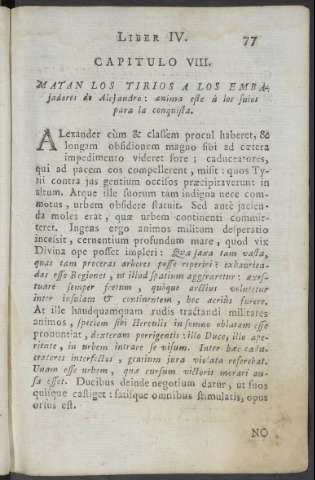 LIBER IV.
77
CAPITULO VIII.
MATAN LOS TIRIOS A LOS EMBA-
jadores de Alejandro: anima este à los suios
para la conquista.
ALexander cùm & classem procul haberet, &
longam obsidionem magno sibi ad cætera
impedimento videret fore; caduceatores,
qui ad pacem eos compellerent, misit: quos Ty-
rii contra jus gentium occisos præcipitaverunt in
altum. Atque ille suorum tam indigna nece com-
motus, urbem obsidere statuit. Sed antè jacien-
da moles erat, quæ urbem continenti commit-
teret. Ingens ergo animos militum desperatio
incessit, cernentium profundum mare, quod vix
Divina ope posset impleri: Quæ saxa tam vasta,
quas tam proceras arbores posse reperiri? exhaurien-
das esse Regiones, ut illud spatium aggeraretur: exæs-
tuare semper fretum, quòque arctius volutetur
inter insulam & continentem, hoc acriùs furere.
At ille haudquamquam rudis tractandi militares
animos, speciem sibi Herculis in somno oblatam esse
pronuntiat, dexteram porrigentis: illo Duce, illo ape-
riente, in urbem intrare se visum. Inter hæc cadu-
ceatores interfectos, gentium jura violata referebat.
Unam esse urbem, quæ cursum victoris morari au-
sa esset. Ducibus deinde negotium datur, ut suos
quisque castiget: satisque omnibus stimulatis, opus
orsus est.
NO